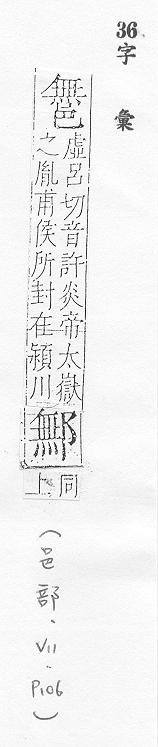 36字 彙
虛呂切音許炎帝太嶽
之胤甫侯所封在潁川
鄦
同上
(邑部·VII:P106)